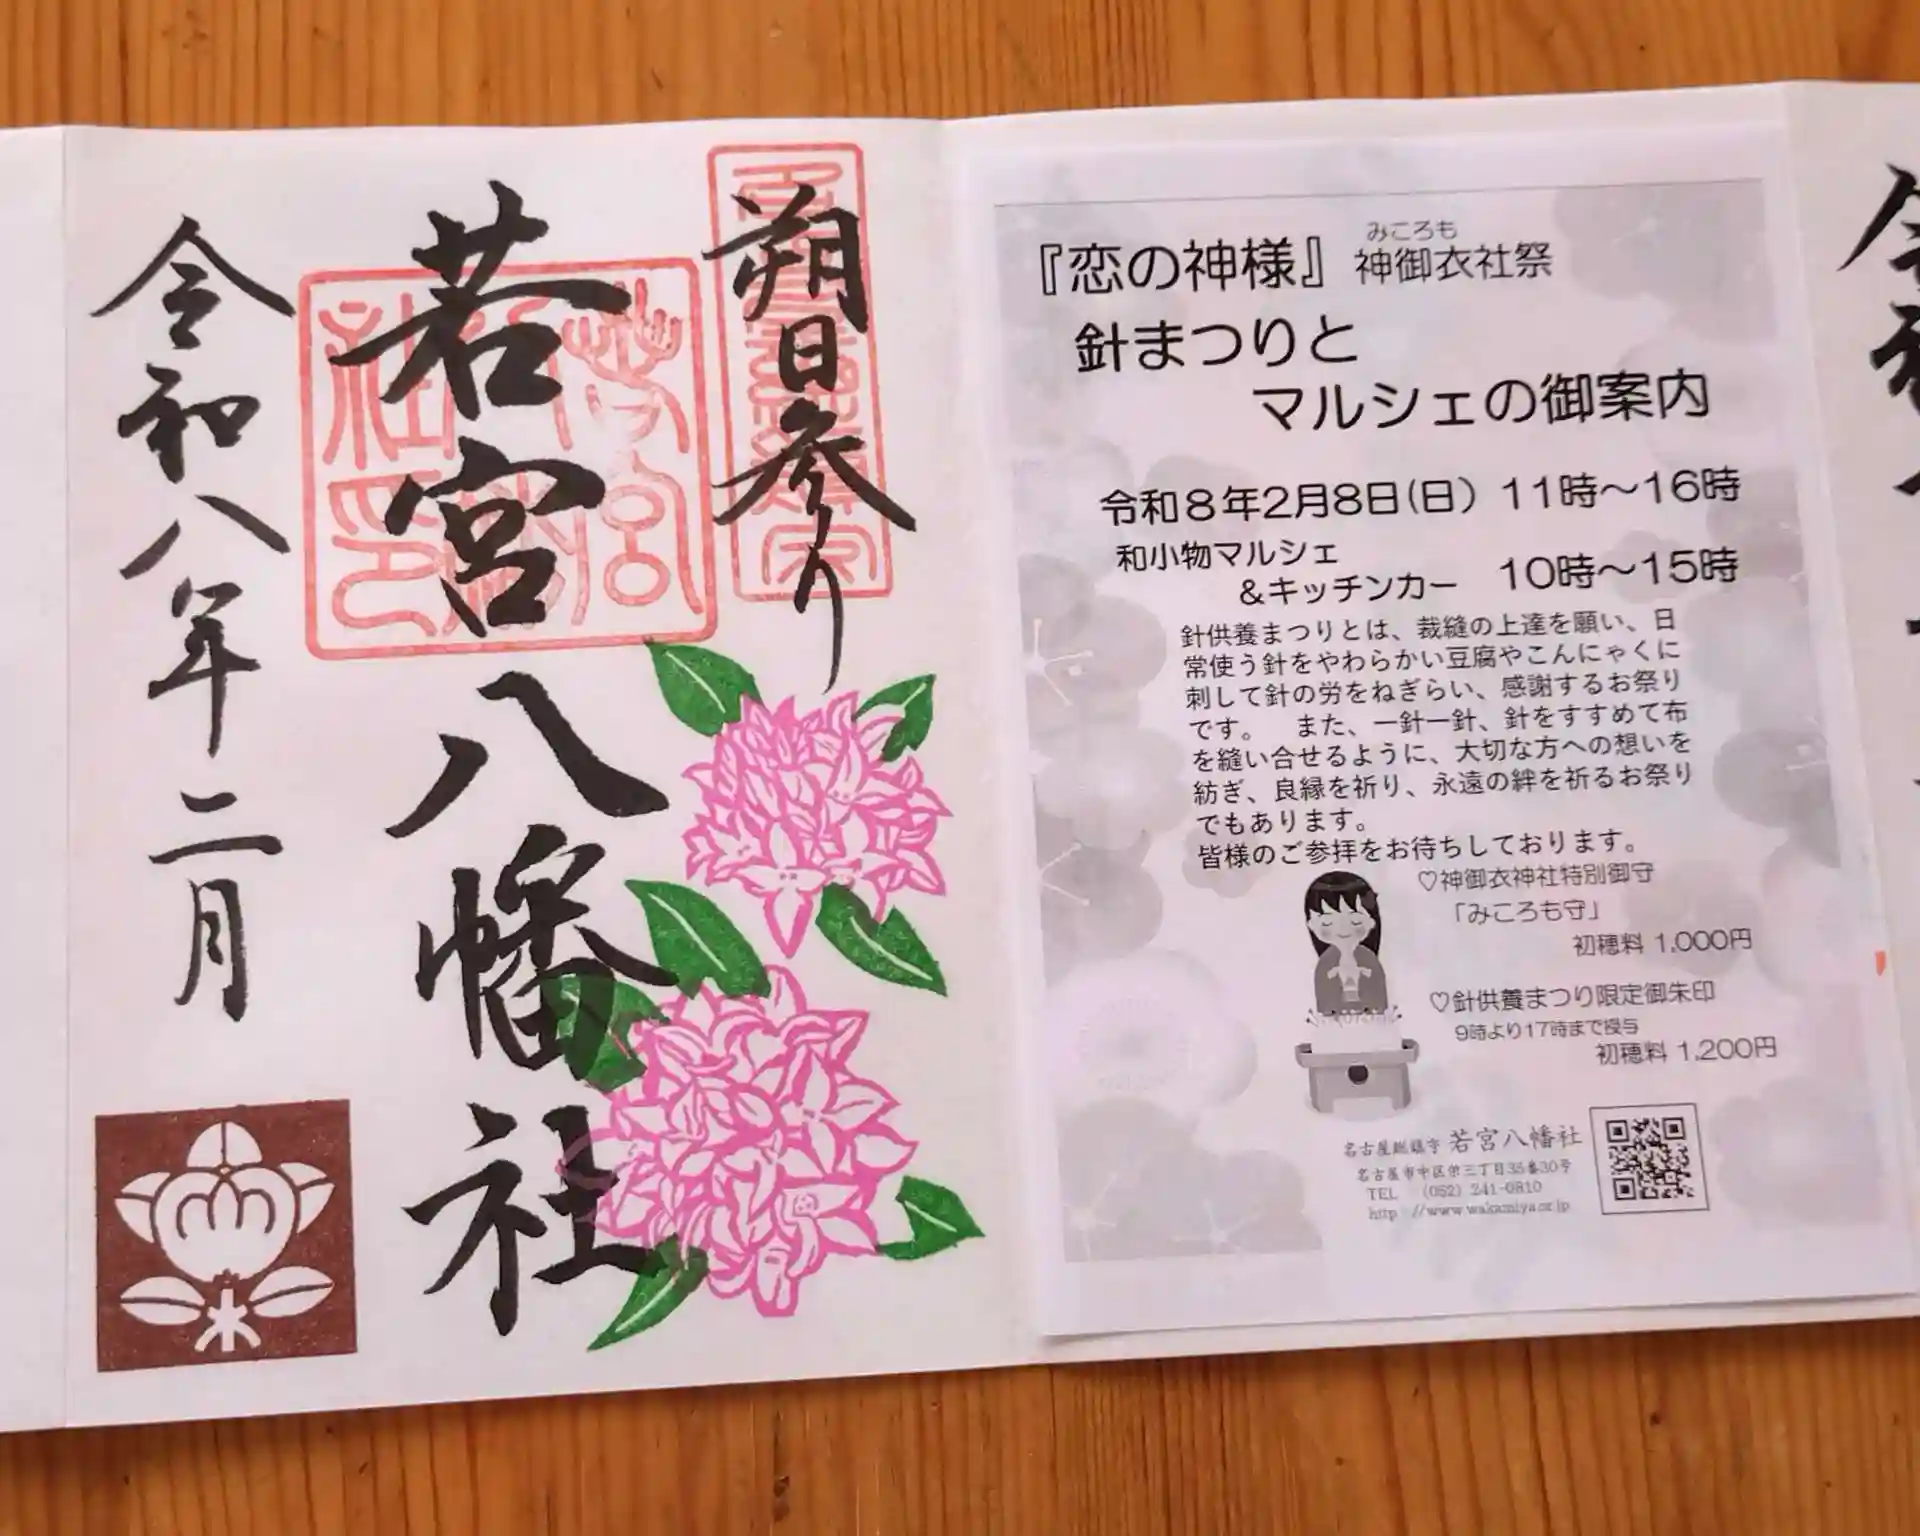 朔日参り
若宮八幡社
令和八年二月
『恋の神様』神御衣社祭
みころも
針まつりと
マルシェの御案内
令和8年2月8日(日) 11時～16時
和小物マルシェ
&キッチンカー 10時～15時
針供養まつりとは、裁縫の上達を願い、日
常使う針をやわらかい豆腐やこんにゃくに
刺して針の労をねぎらい、感謝するお祭り
です。 また、一針一針、針をすすめて布
を縫い合せるように、大切な方への想いを
紡ぎ、良縁を祈り、永遠の絆を祈るお祭り
でもあります。
皆様のご参拝をお待ちしております。
♡神御衣神社特別御守
「みころも守」
初穂料 1,000円
♡針供養まつり限定御朱印
9時より17時まで授与
初穂料 1,200円
名古屋総鎮守 若宮八幡社
名古屋市中区栄三丁目35番30号
TEL (052) 241-0810
http://www.wakamiya.or.jp